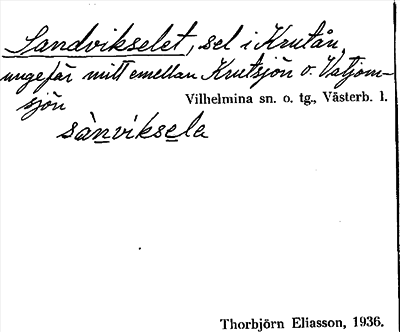 Sandvikselet, sel i Krutån,
ungefär mitt emellan Krutsjön o. Vatjom-
sjön
Vilhelmina sn. o. tg., Västerb. l.
sànviksela
Thorbjörn Eliasson, 1936.